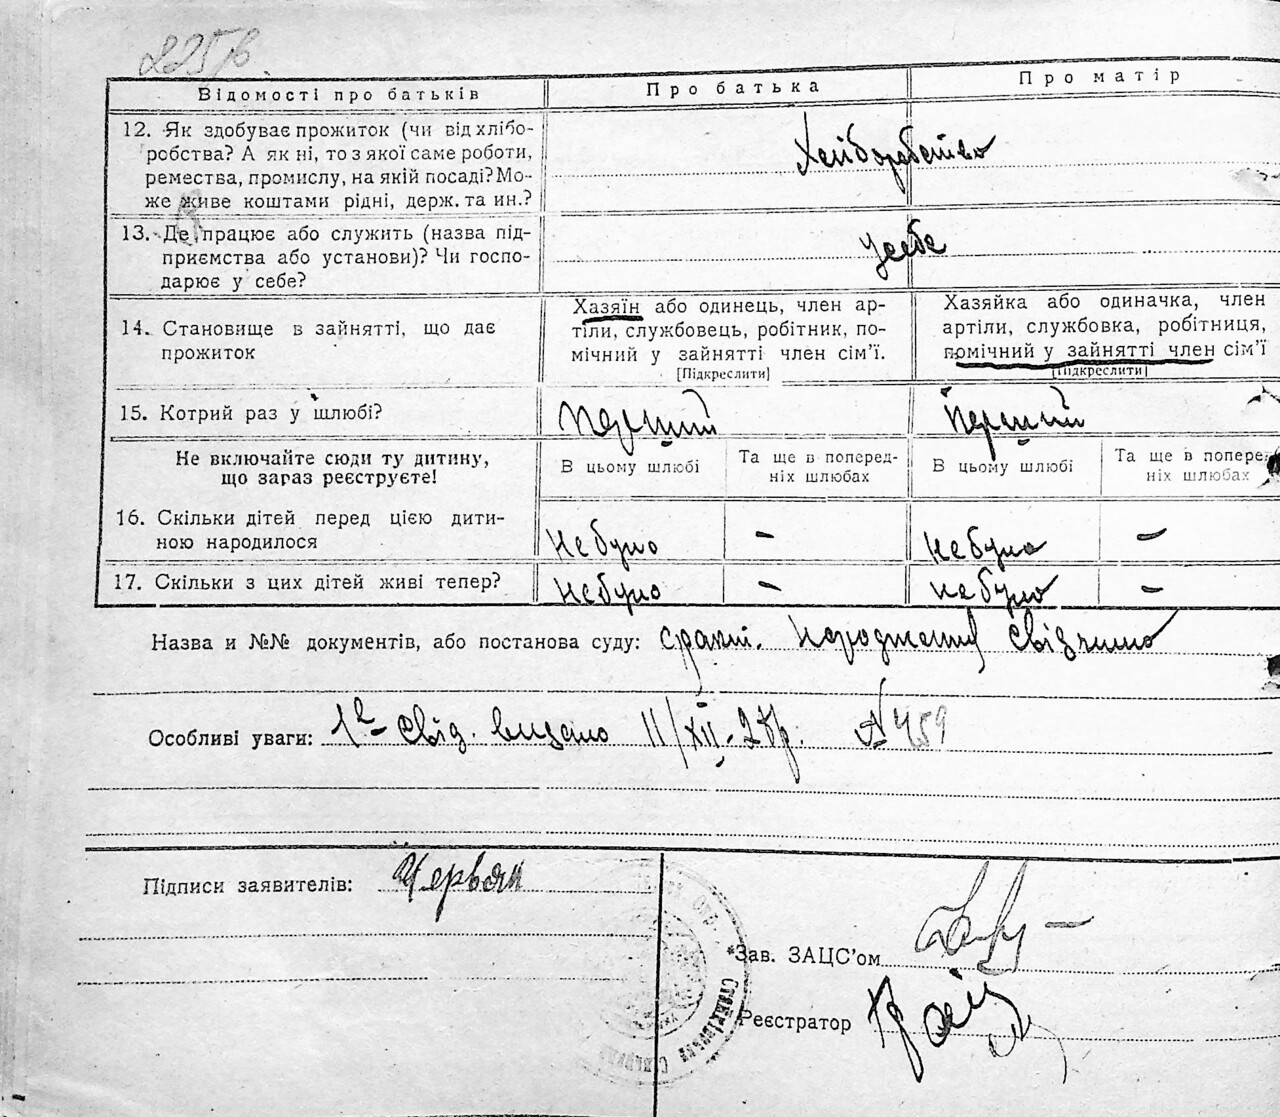 Відомості про батьків
Про батька
Про матір
12. Як здобуває прожиток (чи від хлібо-
робства? А як ні, то з якої саме роботи,
ремества, промислу, на якій посаді? Мо-
же живе коштами рідні, держ. та ин.?
Хліборобство
13. Де працює або служить (назва під-
приємства або установи)? Чи госпо-
дарює у себе?
У себе
14. Становище в зайнятті, що дає
прожиток
Хазяїн або одинець, член ар-
тіли, службовець, робітник, по-
мічний у зайнятті член сім'ї.
[Підкреслити]
Хазяйка або одиначка, член
артіли, службовка, робітниця,
помічний у зайнятті член сім'ї
[Підкреслити]
15. Котрий раз у шлюбі?
Перший
Перший
Не включайте сюди ту дитину,
що зараз реєструєте!
В цьому шлюбі
Та ще в поперед-
ніх шлюбах
В цьому шлюбі
Та ще в поперед-
ніх шлюбах
16. Скільки дітей перед цією дити-
ною народилося
не було
–
не було
–
17. Скільки з цих дітей живі тепер?
не було
–
не було
–
Назва и №№ документів, або постанова суду: факт. народження свідчимо
Особливі уваги: свід. видано 11/XII- № 459
Підписи заявителів: Червяк
Зав. ЗАЦС'ом
Реєстратор